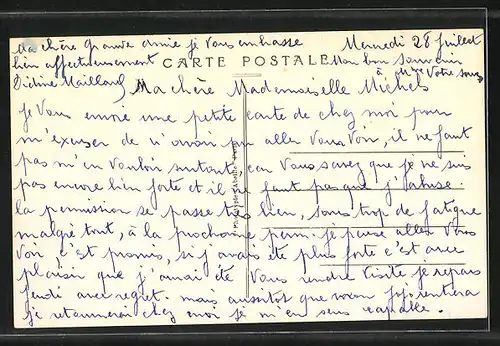 Ma chère Grande amie je vous embrasse
bien affectueusement
Didine Maillard
Mercredi 28 Juillet
Mon bon souvenir
à Mme votre sœur
CARTE POSTALE
Ma chère Mademoiselle Michels
je vous envoie une petite carte de chez moi pour
m'excuser de n'avoir pu aller vous voir, il ne faut
pas m'en vouloir surtout, car vous savez que je ne suis
pas encore bien forte et il ne faut pas que j'abuse.
la permission se passe très bien, sans trop de fatigue
malgré tout, à la prochaine perm. je pense aller vous
voir, c'est promis, si j'avais été plus forte c'est avec
plaisir que j'aurai été vous rendre visite je repars
jeudi avec regret. mais aussitot que
je retournerai chez moi je m'en sens capable.